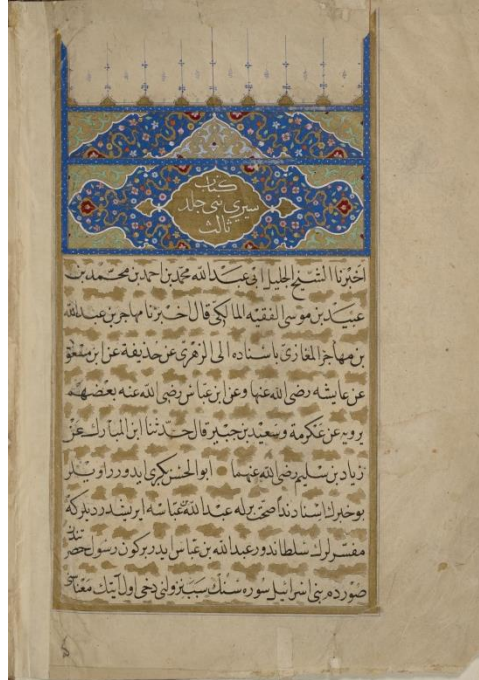 كتاب
سيري نبي جلد
ثالث
اخبرنا الشيخ الجليل ابي عبد الله محمد بن احمد بن محمد بن
عبيد بن موسى الفقيه المالكي قال اخبرنا مهاجر بن عبد الله
بن مهاجر المغازي باسناده الى الزهري عن حذيفة عن ابن مسعود
عن عايشه رضى الله عنها وعن ابن عباس رضى الله عنه بعضهم
يرويه عن عكرمة وسعيد بن جبير قال حدثنا ابن المبارك عن
زياد بن سليم رضى الله عنهما ابو الحسن بكري ايدور راويلر
بو خبرك اسنادنده صحت برله عبد الله عباسه ايرشدرديلر كه
مفسرلرك سلطاندور عبد الله بن عباس ايدر بركون رسول حضرتندن
صوردم بنى اسرائيل سوره سنك سبب نزولنى دخى اول آيتك معناسن